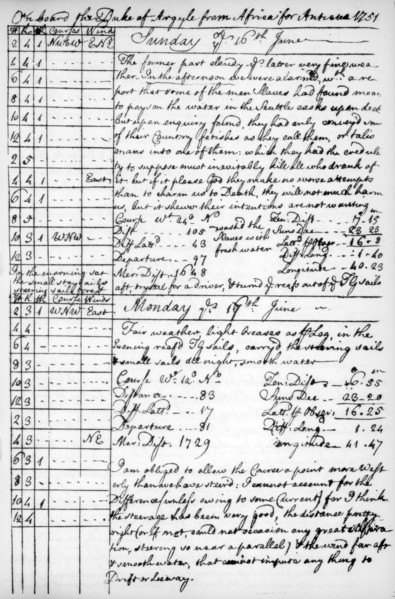 On board the Duke of Argyle from Africa for Antegua 1751
H K h Courses Winds
Sunday ye 16th June
2 4 1 NWbW EbN
The former part cloudy ye latter very fine wea
4 4 1
ther. In the afternoon we were alarm'd with a re
6 4 1
port that some of the men Slaves had found means
8 4 1
to poyson the water in the Scuttle casks upon deck
10 4 1
but upon enquiry found they had only conveyed some
12 4 1
of their Country fetishes as they call them, or talis
mans into one of them; which they had the creduli
2 5
ty to suppose must inevitably kill all who drank of
4 4 1 East
it. but if it please God they make no worse attempts
than to charm us to Death, they will not much harm
6 4 1
us, but it shews their intentions are not wanting
8 5
Course Wt 24o No Zen Distce 17-15
10 3 1 WNW
Dist 105 washd the Suns Dec 23-23
Diff Latd 43 Slaves with Latd 16-8
12 3
Departure 97 fresh water Diff Long 1-40
In the morning sat
Meri Dist 1648 Longitude 40-23
the small stay sails
aft, tryed for a driver, & turn'd ye reefs out of ye TG sails
steering sails forward
H K h Courses Winds
Monday ye 17th June
2 4 1 WNW East
4 4
Fair weather, light breezes as pr Log, in the
6 4
Evening reef'd TG sails, carry'd the steering sails
8 3
& small sails all night, smooth water
10 3
Course Wt 12o No Zen Dist 46-55
12 3
Distance 83 Suns Dec 23-20
2 3
Diff Latd 17 Latd pr Obser 16-25
2 3
Departure 81 Diff Long 1-24
4 3 NE
Meri Dist 1729 Longitude 41-47
6 3 1
I am obliged to allow the Course a point more West
8 3
erly than we have steer'd; I cannot account for the
10 4 1
Difference (unless owing to some Current) for I think
12 4
the steerage has been very good, the distance pretty
right (or if not, could not occasion any great altera
tion, steering so near a parallel) & the wind far aft
& smooth water, that cannot impute any thing to
Drift or Leeway.